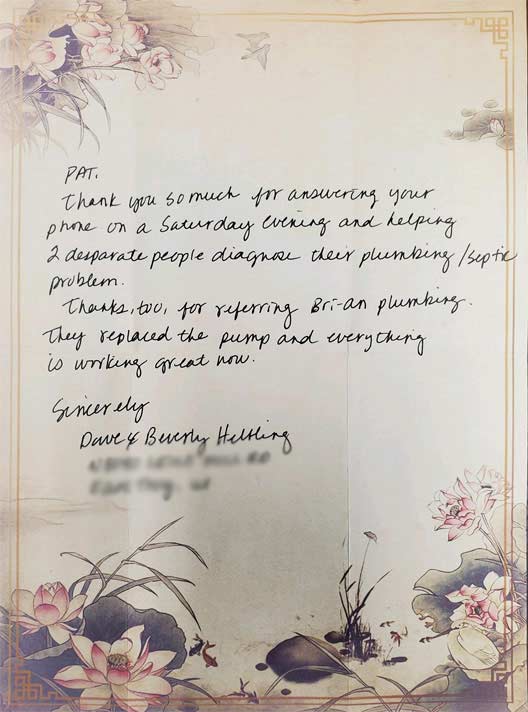 PAT,
Thank you so much for answering your
phone on a Saturday evening and helping
2 desparate people diagnose their plumbing/septic
problem.
Thanks, too, for referring Bri-an plumbing.
They replaced the pump and everything
is working great now.
Sincerely
Dave & Beverly Heltling